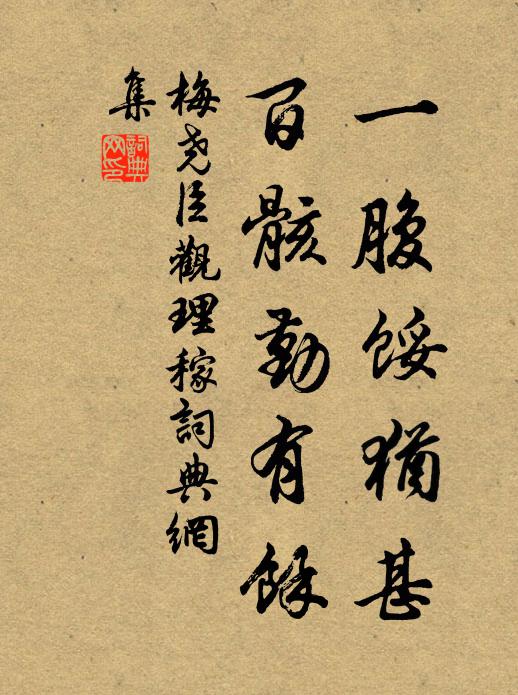 一腹餒猶甚
百骸勤有餘
梅堯臣觀理稼詞典網
集
詞典
網印